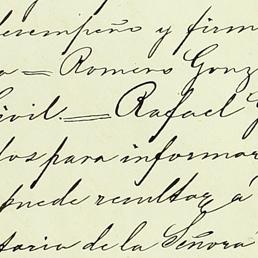 desempeño y firm
o = Romero Gonz
Civil. = Rafael
dos para informar
puede resultar á
toria de la Señora